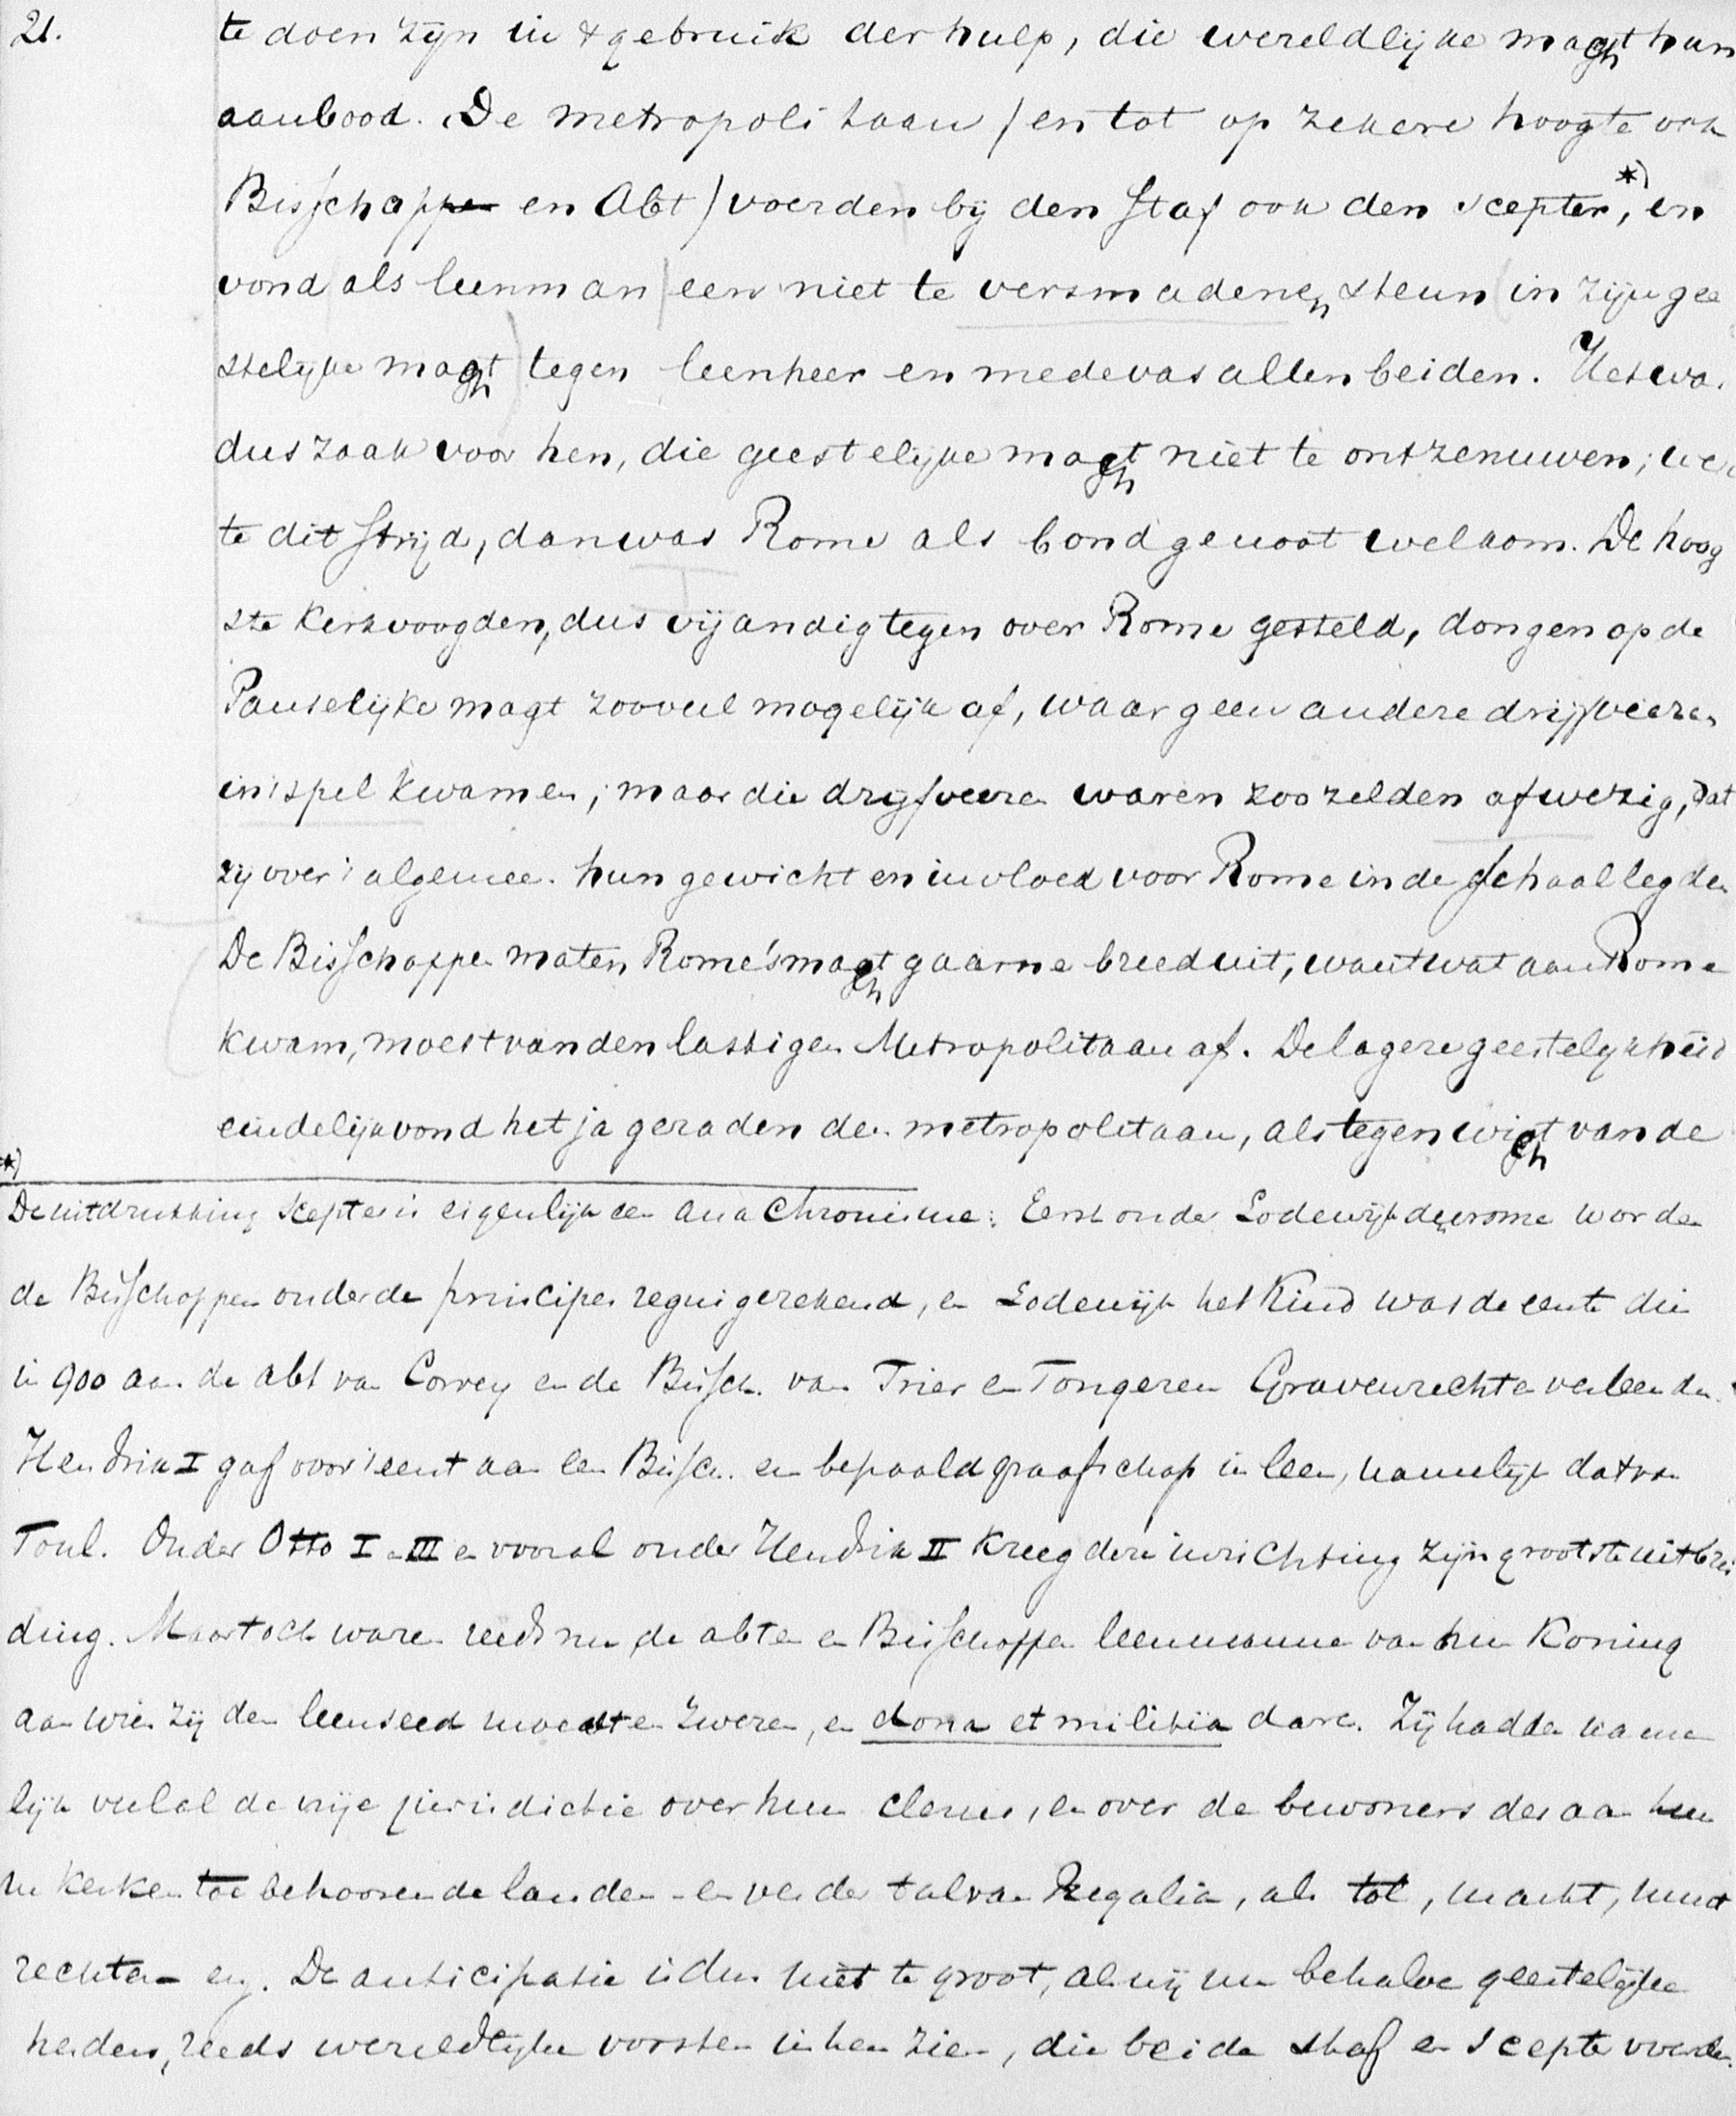 21.
te doen zijn in 't gebruik der hulp, die wereldlijke macht hun
aanbood. De metropolitaan (en tot op zekere hoogte ook
Bisschop en Abt) voerden bij den staf ook den scepter,*) en
vond als leenman een niet te versmadenen steun in zijn gee
stelijke macht tegen leenheer en medevasallen beiden. Het was
dus zaak voor hen, die geestelijke macht niet te ontzenuwen;
te dit strijd, dan was Rome als bondgenoot welkom. De hoog
ste kerkvoogden, dus vijandig tegen over Rome gesteld, dongen op de
Pauselijke magt zooveel mogelijk af, waar geen andere drijfveeren
in 't spel kwamen; maar die drijfveeren waren zoo zelden afwezig, dat
zij over 't algemeen hun gewicht en invloed voor Rome in de schaal legden
De Bisschoppen maten Rome's macht gaarne breed uit, want wat aan Rome
kwam, moest van den lastigen Metropolitaan af. De lagere geestelijkheid
eindelijk vond het ja geraden den metropolitaan, als tegenwicht van de
*)
De uitdrukking scepter is eigenlijk een anachronisme: Eerst onder Lodewijk de vrome worden
de Bisschoppen onder de principes regni gerekend, en Lodewijk het Kind was de eerste die
in 900 aan de abt van Corvey en de Bissch. van Trier en Tongeren Gravenrechten verleende.
Hendrik I gaf voor 't eerst aan een Bissch. een bepaald graafschap in leen, namelijk dat van
Toul. Onder Otto I en III en vooral onder Hendrik II kreeg deze inrichting zijn grootste uitbrei
ding. Maar toch waren reeds nu de abten en Bisschoppen leenmannen van hun Koning
aan wien zij den leenseed moesten zweren, en dona et militia dare. Zij hadden name
lijk veelal de vrije jurisdictie over hun clerus, en over de bewoners der aan hun
ne kerken toebehoorende landen - en verder tal van Regalia, als tol, markt, munt
rechten enz. De anticipatie is dus niet te groot, als wij nu behalve geestelijke
herders, reeds wereldlijke vorsten in hen zien, die beide staf en scepter voerden.